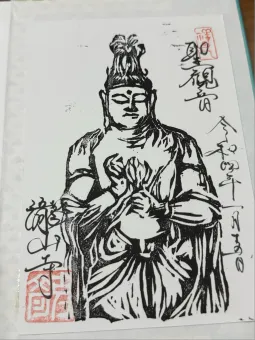 聖観音
令和四年一月
瀧山寺